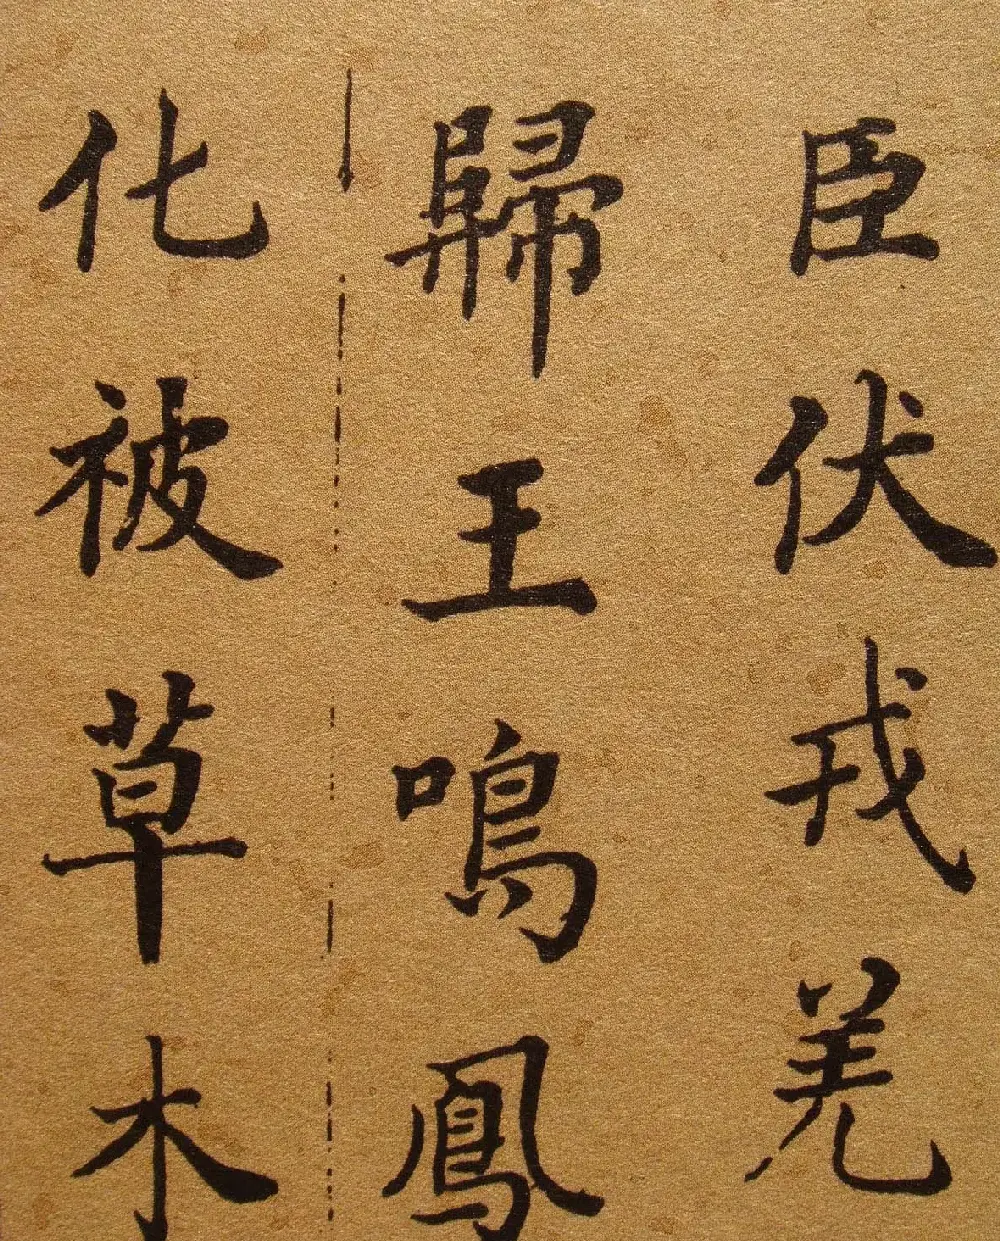 臣伏戎羌
歸王鳴鳳
化被草木